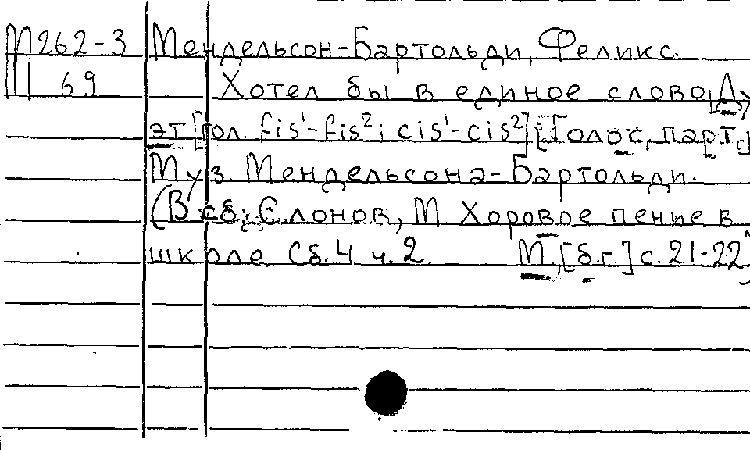 М262-3 Мендельсон-Бартольди, Феликс.
П 69 Хотел бы в единое слово [Ду
эт] [гол. fis¹-fis²; cis¹-cis²] [Голос. парт.]
Муз. Мендельсона-Бартольди.
(В сб.: Слонов, М Хоровое пение в
школе Сб. 4 ч. 2 М., [б.г.] с. 21-22)